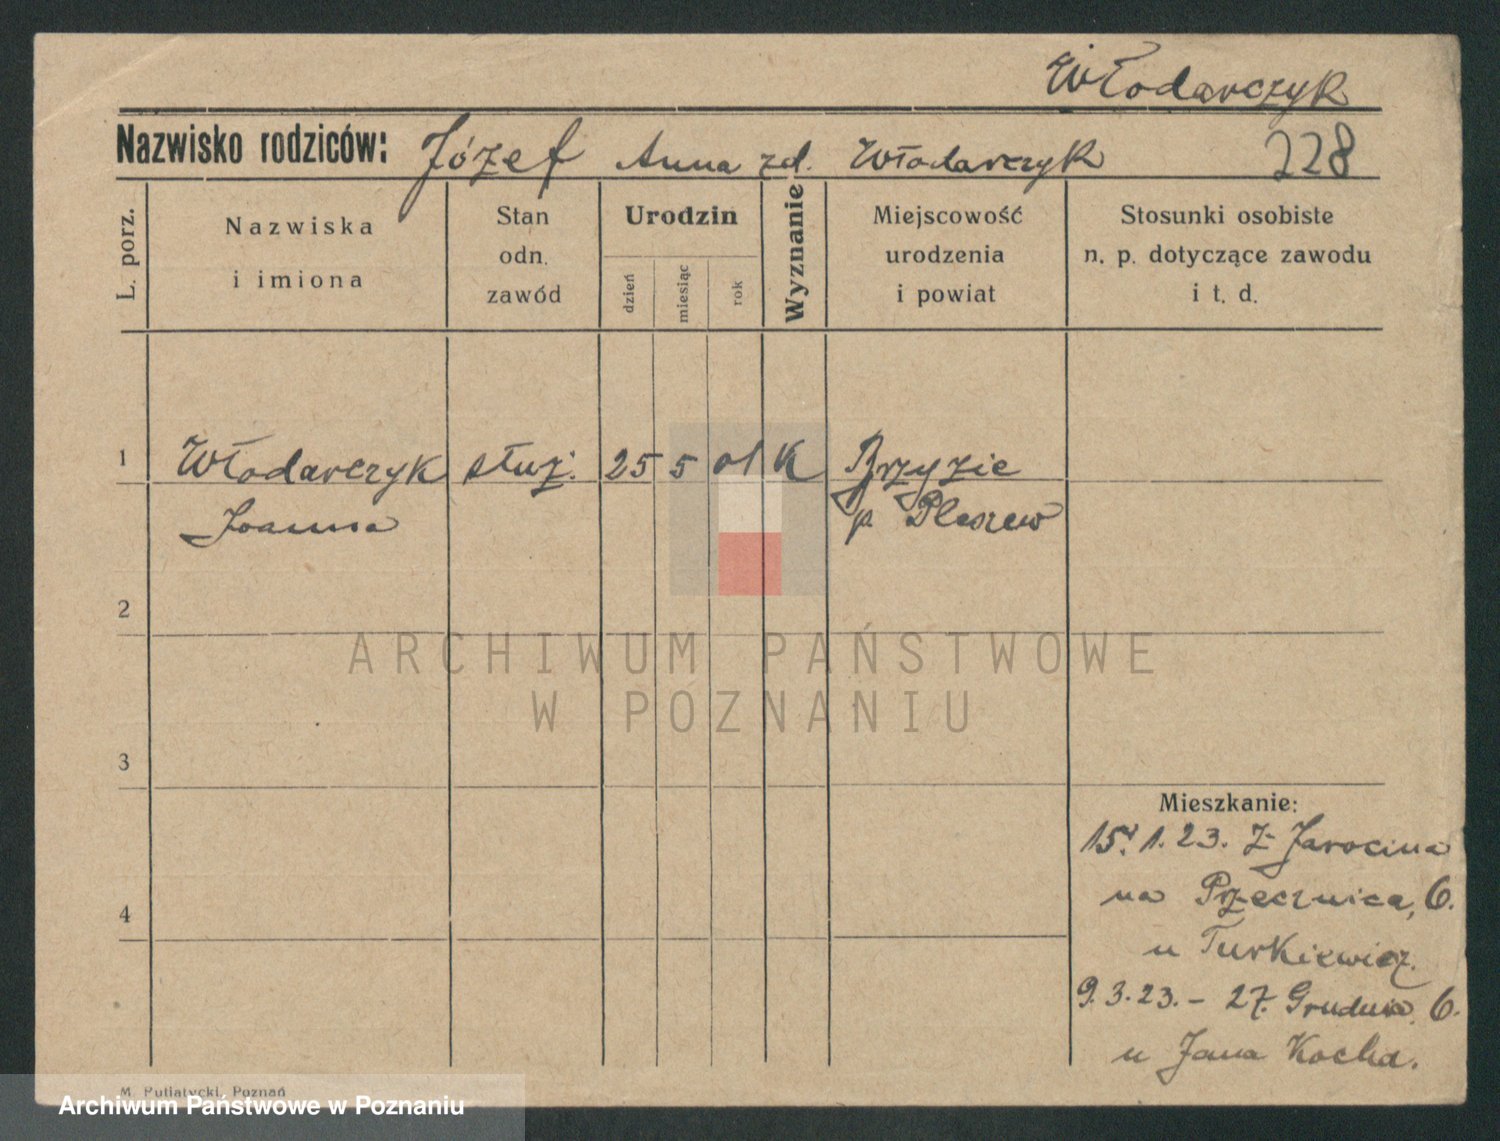 Włodarczyk
Nazwisko rodziców: Józef Anna zd. Włodarczyk 228
L. porz.
Nazwiska
i imiona
Stan
odn.
zawód
Urodzin
dzień
miesiąc
rok
Wyznanie
Miejscowość
urodzenia
i powiat
Stosunki osobiste
n. p. dotyczące zawodu
i t. d.
1 Włodarczyk służ. 25 5 01 K Brzyzie
Joanna p Pleszew
2
ARCHIWUM PAŃSTWOWE
W POZNANIU
3
Mieszkanie:
15. 1. 23. z Jarocina
na Przecznica, 6.
4
u Turkiewicz.
9. 3. 23. - 27. Grudnia. 6.
u Jana Kocha.
M. Putiatycki, Poznań
Archiwum Państwowe w Poznaniu